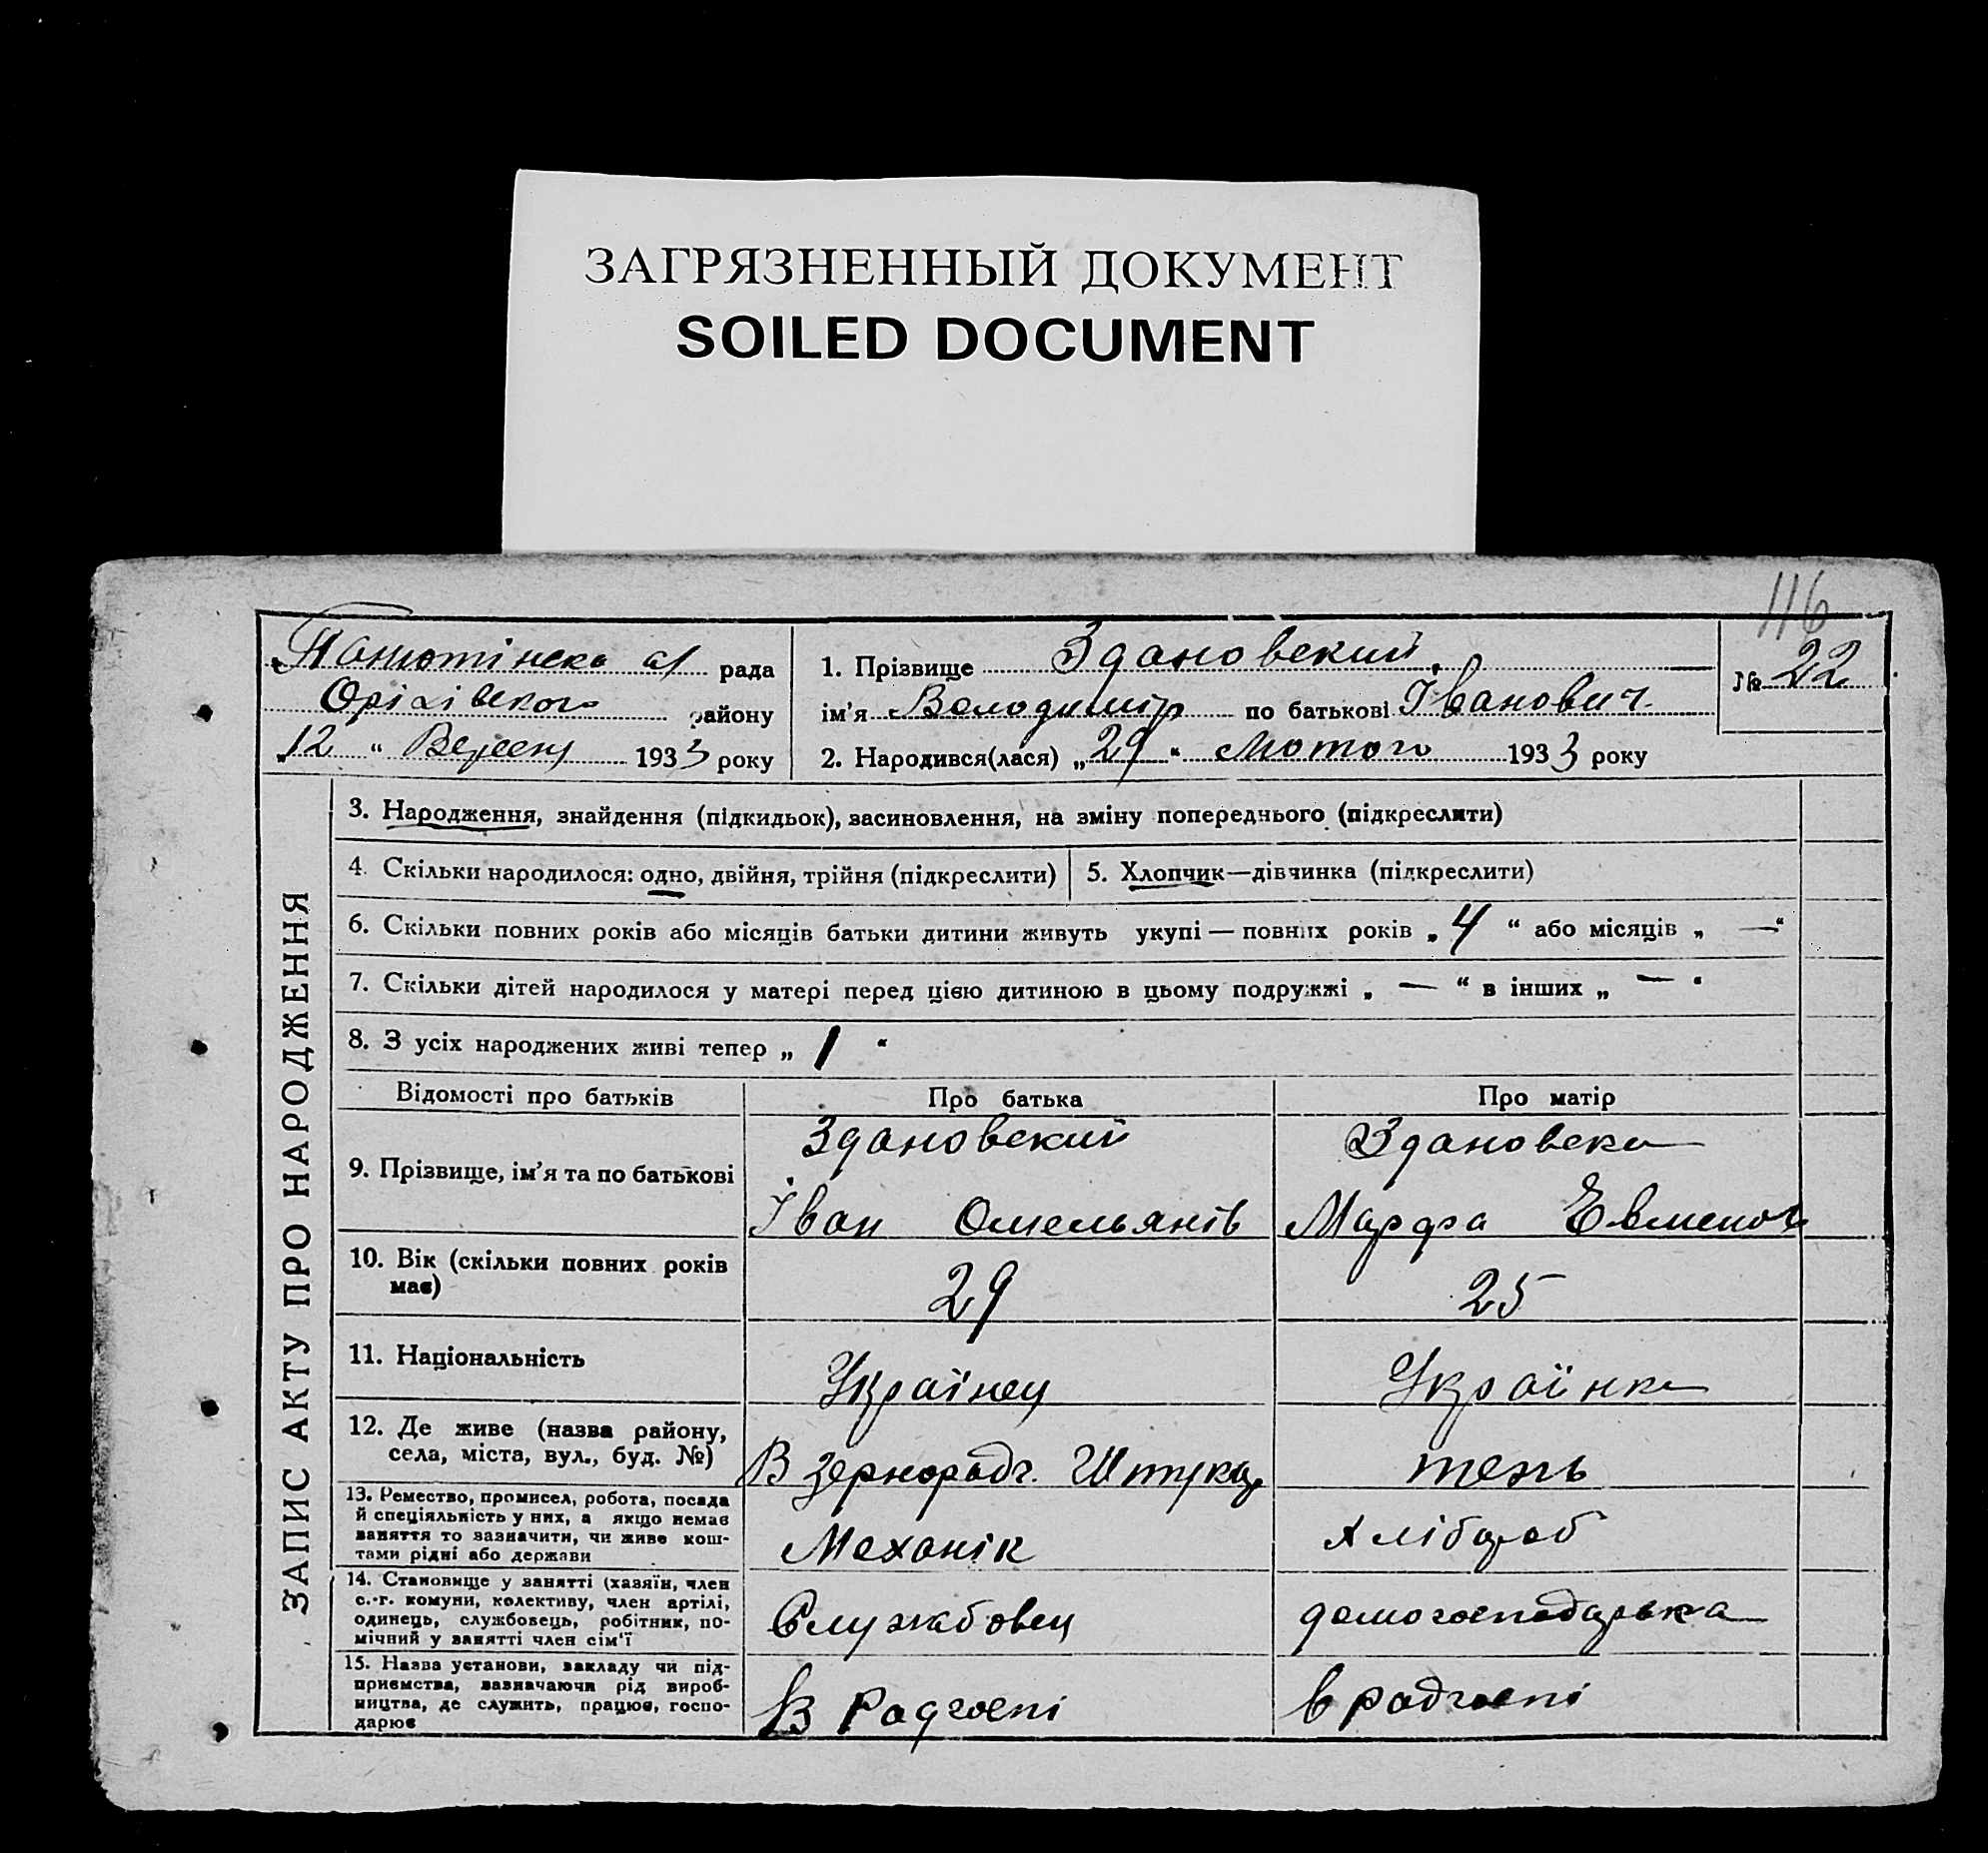 ЗАГРЯЗНЕННЫЙ ДОКУМЕНТ
SOILED DOCUMENT
116
Панютінска с/ рада
Оріхівского району
„12 “ Вересня 1933 року
1. Прізвище Здановский
ім’я Володимір по батькові Іванович
2. Народився(лася) „29“ Лютого 1933 року
№ 22
ЗАПИС АКТУ ПРО НАРОДЖЕННЯ
3. Народження, знайдення (підкидьок), засиновлення, на зміну попереднього (підкреслити)
4. Скільки народилося: одно, двійня, трійня (підкреслити)
5. Хлопчик—дівчинка (підкреслити)
6. Скільки повних років або місяців батьки дитини живуть укупі — повних років „4“ або місяців „—“
7. Скільки дітей народилося у матері перед цією дитиною в цьому подружжі „ — “ в інших „ — “
8. З усіх народжених живі тепер „ 1 “
Відомості про батьків Про батька Про матір
9. Прізвище, ім’я та по батькові
Здановский
Іван Омельянів
Здановска
Марфа Евменов
10. Вік (скільки повних років має)
29
25
11. Національність
Українец
Українка
12. Де живе (назва району,
села, міста, вул., буд. №)
В зернорадг.
тежь
13. Ремество, промисел, робота, посада
й спеціяльність у них, а якщо немає
заняття то зазначити, чи живе кош-
тами рідні або держави
Механік
Хлібороб
14. Становище у занятті (хазяїн, член
с.-г. комуни, колективу, член артілі,
одинець, службовець, робітник, по-
мічний у занятті член сім’ї
Службовец
домогосподарька
15. Назва установи, закладу чи під-
приємства, зазначаючи рід вироб-
ництва, де служить, працює, госпо-
дарює
В Радгоспі
в радгоспі